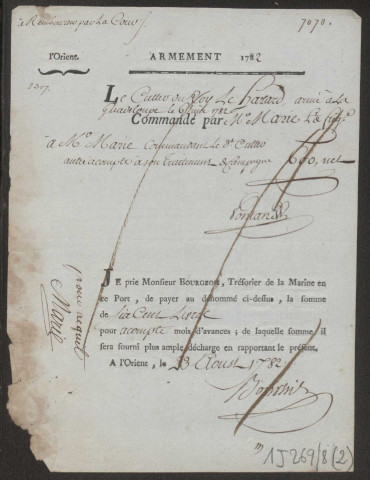 à Rembourser par La Cour
7070.
l'Orient. ARMEMENT 1782
1307.
Le Cuttro du Roy Le hazard, armé à la
Guadeloupe le 1782
Commandé par Mr. Marie Lt. de
à Mr. Marie Commandant le dt. Cuttro
autre acompte à son traitement de Campagne 600, net
JE prie Monsieur BOURGEOIS, Trésorier de la Marine en
ce Port, de payer au dénommé ci-dessus, la somme
de Six Cent Livres
pour acompte mois d'avances; de laquelle somme il
sera fourni plus ample décharge en rapportant le présent.
A l'Orient, le 13 Aoust 1782
pour acquit
Marie
1J269/8(2)